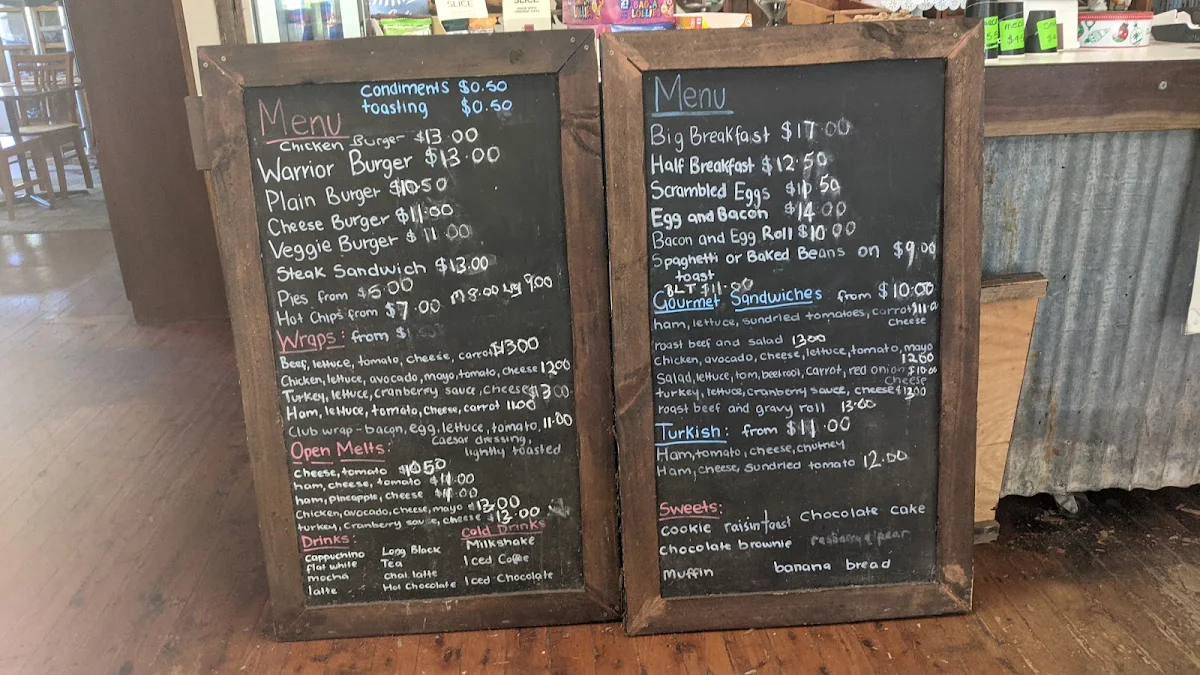 SLICE
SLICE
LOLLIES
Condiments $0.50
toasting $0.50
Menu
Chicken Burger $13.00
Warrior Burger $13.00
Plain Burger $10.50
Cheese Burger $11.00
Veggie Burger $11.00
Steak Sandwich $13.00
Pies from $6.00
Hot Chips from $7.00 M 8.00 Lg 9.00
Wraps: from $1
Beef, lettuce, tomato, cheese, carrot $13.00
Chicken, lettuce, avocado, mayo, tomato, cheese 12.00
Turkey, lettuce, cranberry sauce, cheese $13.00
Ham, lettuce, tomato, cheese, carrot 11.00
Club wrap - bacon, egg, lettuce, tomato, 11.00
caesar dressing,
lightly toasted
Open Melts:
cheese, tomato $10.50
ham, cheese, tomato $11.00
ham, pineapple, cheese $11.00
Chicken, avocado, cheese, mayo $13.00
turkey, cranberry sauce, cheese $13.00
Drinks:
cappuchino
flat white
mocha
latte
Long Black
Tea
chai latte
Hot Chocolate
Cold Drinks
Milkshake
Iced Coffee
Iced Chocolate
Menu
Big Breakfast $17.00
Half Breakfast $12.50
Scrambled Eggs $10.50
Egg and Bacon $14.00
Bacon and Egg Roll $10.00
Spaghetti or Baked Beans on $9.00
toast
BLT $11.00
Gourmet Sandwiches from $10.00
ham, lettuce, sundried tomatoes, carrot $11.00
cheese
roast beef and salad 13.00
Chicken, avocado, cheese, lettuce, tomato, mayo
12.00
Salad, lettuce, tom, beetroot, carrot, red onion $10.00
cheese
turkey, lettuce, cranberry sauce, cheese $12.00
roast beef and gravy roll 13.00
Turkish: from $11.00
Ham, tomato, cheese, chutney
Ham, cheese, sundried tomato 12.00
Sweets:
cookie raisin toast chocolate cake
chocolate brownie raspberry & pear
muffin banana bread